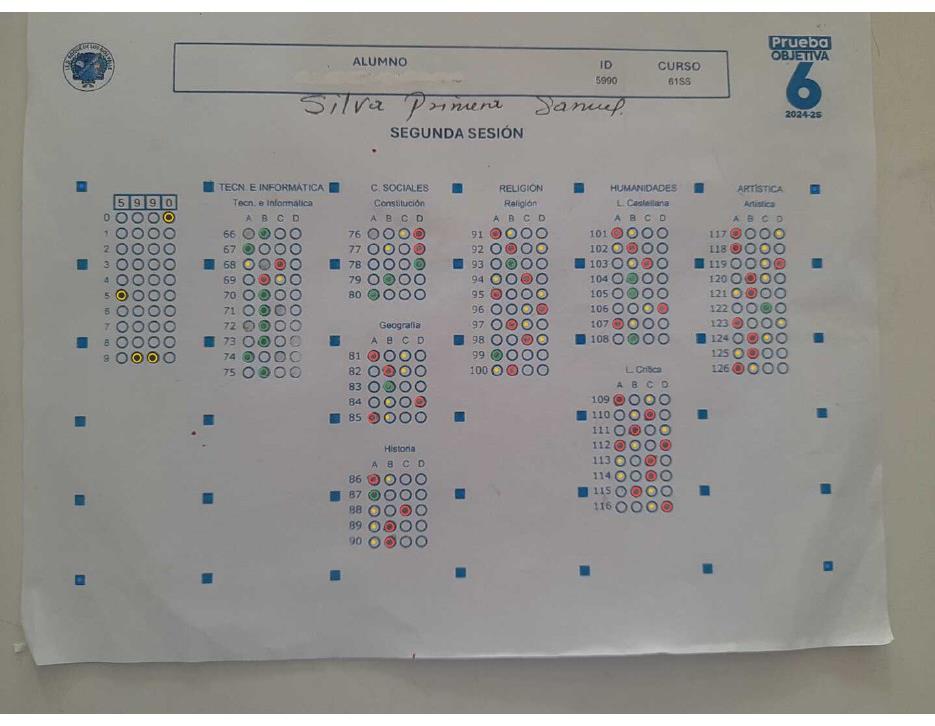 I.E.D. ROQUE DE LOS RIOS VALLE
ALUMNO
ID
CURSO
5990
61SS
Prueba
OBJETIVA
6
2024-25
Silva Primera Samuel.
SEGUNDA SESIÓN
5 9 9 0
0
1
2
3
4
5
6
7
8
9
TECN. E INFORMÁTICA
Tecn. e Informática
A B C D
66
67
68
69
70
71
72
73
74
75
C. SOCIALES
Constitución
A B C D
76
77
78
79
80
Geografía
A B C D
81
82
83
84
85
Historia
A B C D
86
87
88
89
90
RELIGIÓN
Religión
A B C D
91
92
93
94
95
96
97
98
99
100
HUMANIDADES
L. Castellana
A B C D
101
102
103
104
105
106
107
108
L. Crítica
A B C D
109
110
111
112
113
114
115
116
ARTÍSTICA
Artística
A B C D
117
118
119
120
121
122
123
124
125
126